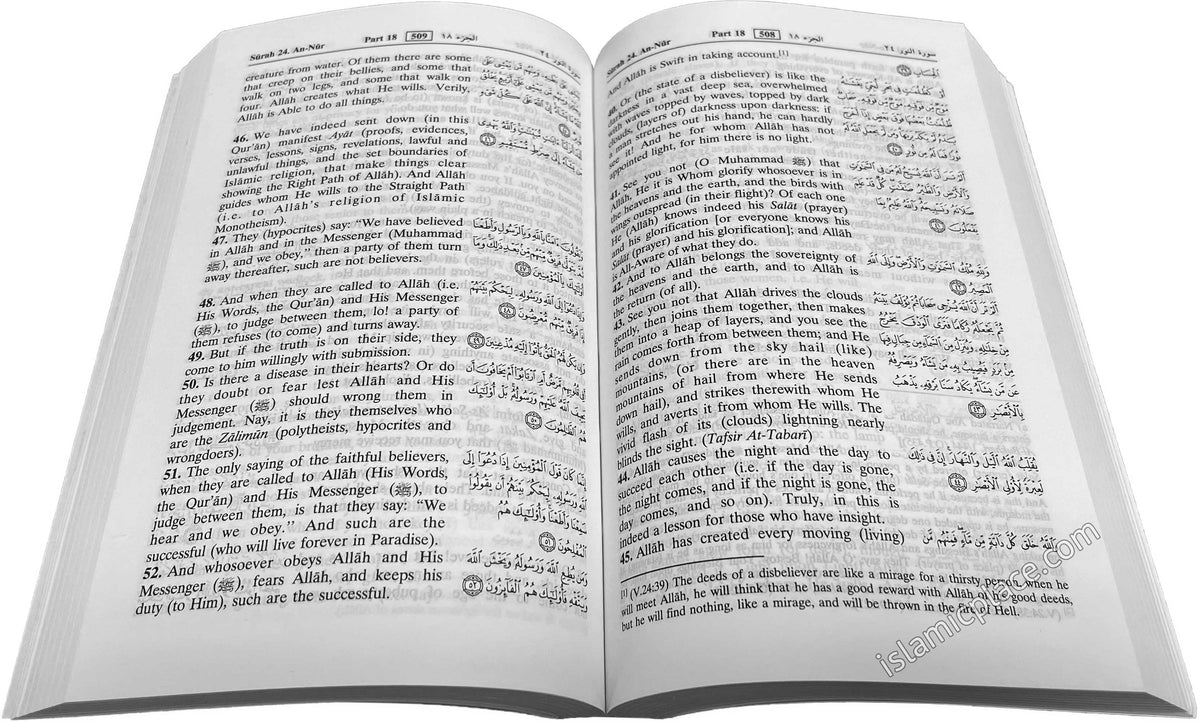 Sûrah 24. An-Nûr Part 18 508 الجزء ١٨ سورة النور ٢٤
And Allâh is Swift in taking account.[1]
40. Or (the state of a disbeliever) is like the
darkness in a vast deep sea, overwhelmed
with waves topped by waves, topped by dark
clouds, (layers of) darkness upon darkness: if
a man stretches out his hand, he can hardly
see it! And he for whom Allâh has not
appointed light, for him there is no light.
41. See you not (O Muhammad ﷺ) that
Allâh, He it is Whom glorify whosoever is in
the heavens and the earth, and the birds with
wings outspread (in their flight)? Of each one
He (Allâh) knows indeed his Salât (prayer)
and his glorification [or everyone knows his
Salât (prayer) and his glorification]; and Allâh
is All-Aware of what they do.
42. And to Allâh belongs the sovereignty of
the heavens and the earth, and to Allâh is
the return (of all).
43. See you not that Allâh drives the clouds
gently, then joins them together, then makes
them into a heap of layers, and you see the
rain comes forth from between them; and He
sends down from the sky hail (like)
mountains, (or there are in the heaven
mountains of hail from where He sends
down hail), and strikes therewith whom He
wills, and averts it from whom He wills. The
vivid flash of its (clouds) lightning nearly
blinds the sight. (Tafsir At-Tabarî)
44. Allâh causes the night and the day to
succeed each other (i.e. if the day is gone,
the night comes, and if the night is gone, the
day comes, and so on). Truly, in this is
indeed a lesson for those who have insight.
45. Allâh has created every moving (living)
الْحِسَابِ ٣٩
أَوْ كَظُلُمَٰتٍ فِى بَحْرٍ لُّجِّىٍّ يَغْشَىٰهُ
مَوْجٌ مِّن فَوْقِهِۦ مَوْجٌ مِّن فَوْقِهِۦ سَحَابٌ
ظُلُمَٰتٌۢ بَعْضُهَا فَوْقَ بَعْضٍ إِذَآ أَخْرَجَ
يَدَهُۥ لَمْ يَكَدْ يَرَىٰهَا وَمَن لَّمْ يَجْعَلِ ٱللَّهُ لَهُۥ
نُورًا فَمَا لَهُۥ مِن نُّورٍ ٤٠
أَلَمْ تَرَ أَنَّ ٱللَّهَ يُسَبِّحُ لَهُۥ مَن فِى ٱلسَّمَٰوَٰتِ
وَٱلْأَرْضِ وَٱلطَّيْرُ صَٰٓفَّٰتٍ كُلٌّ قَدْ عَلِمَ
صَلَاتَهُۥ وَتَسْبِيحَهُۥ وَٱللَّهُ عَلِيمٌۢ بِمَا
يَفْعَلُونَ ٤١
وَلِلَّهِ مُلْكُ ٱلسَّمَٰوَٰتِ وَٱلْأَرْضِ وَإِلَى ٱللَّهِ
ٱلْمَصِيرُ ٤٢
أَلَمْ تَرَ أَنَّ ٱللَّهَ يُزْجِى سَحَابًا ثُمَّ يُؤَلِّفُ بَيْنَهُۥ
ثُمَّ يَجْعَلُهُۥ رُكَامًا فَتَرَى ٱلْوَدْقَ يَخْرُجُ
مِنْ خِلَٰلِهِۦ وَيُنَزِّلُ مِنَ ٱلسَّمَآءِ مِن جِبَالٍ فِيهَا
مِنۢ بَرَدٍ فَيُصِيبُ بِهِۦ مَن يَشَآءُ وَيَصْرِفُهُۥ
عَن مَّن يَشَآءُ يَكَادُ سَنَا بَرْقِهِۦ يَذْهَبُ
بِٱلْأَبْصَٰرِ ٤٣
يُقَلِّبُ ٱللَّهُ ٱلَّيْلَ وَٱلنَّهَارَ إِنَّ فِى ذَٰلِكَ
لَعِبْرَةً لِّأُو۟لِى ٱلْأَبْصَٰرِ ٤٤
وَٱللَّهُ خَلَقَ كُلَّ دَآبَّةٍ مِّن مَّآءٍ فَمِنْهُم مَّن
[1] (V.24:39) The deeds of a disbeliever are like a mirage for a thirsty person, when he
will meet Allâh, he will think that he has a good reward with Allâh of his good deeds,
but he will find nothing, like a mirage, and will be thrown in the fire of Hell.
Sûrah 24. An-Nûr Part 18 509 الجزء ١٨ سورة النور ٢٤
creature from water. Of them there are some
that creep on their bellies, and some that
walk on two legs, and some that walk on
four. Allâh creates what He wills. Verily,
Allâh is Able to do all things.
46. We have indeed sent down (in this
Qur'ân) manifest Ayât (proofs, evidences,
verses, lessons, signs, revelations, lawful and
unlawful things, and the set boundaries of
Islâmic religion, that make things clear
showing the Right Path of Allâh). And Allâh
guides whom He wills to the Straight Path
(i.e. to Allâh's religion of Islâmic
Monotheism).
47. They (hypocrites) say: “We have believed
in Allâh and in the Messenger (Muhammad
ﷺ), and we obey,” then a party of them turn
away thereafter, such are not believers.
48. And when they are called to Allâh (i.e.
His Words, the Qur'ân) and His Messenger
(ﷺ), to judge between them, lo! a party of
them refuses (to come) and turns away.
49. But if the truth is on their side, they
come to him willingly with submission.
50. Is there a disease in their hearts? Or do
they doubt or fear lest Allâh and His
Messenger (ﷺ) should wrong them in
judgement. Nay, it is they themselves who
are the Zâlimûn (polytheists, hypocrites and
wrongdoers).
51. The only saying of the faithful believers,
when they are called to Allâh (His Words,
the Qur'ân) and His Messenger (ﷺ), to
judge between them, is that they say: “We
hear and we obey.” And such are the
successful (who will live forever in Paradise).
52. And whosoever obeys Allâh and His
Messenger (ﷺ), fears Allâh, and keeps his
duty (to Him), such are the successful.
وَيَقُولُونَ ءَامَنَّا بِٱللَّهِ وَبِٱلرَّسُولِ وَأَطَعْنَا
ثُمَّ يَتَوَلَّىٰ فَرِيقٌ مِّنْهُم مِّنۢ بَعْدِ ذَٰلِكَ وَمَآ
أُو۟لَٰٓئِكَ بِٱلْمُؤْمِنِينَ ٤٧
وَإِذَا دُعُوٓا۟ إِلَى ٱللَّهِ وَرَسُولِهِۦ لِيَحْكُمَ بَيْنَهُمْ
إِذَا فَرِيقٌ مِّنْهُم مُّعْرِضُونَ ٤٨
وَإِن يَكُن لَّهُمُ ٱلْحَقُّ يَأْتُوٓا۟ إِلَيْهِ مُذْعِنِينَ ٤٩
أَفِى قُلُوبِهِم مَّرَضٌ أَمِ ٱرْتَابُوٓا۟ أَمْ يَخَافُونَ أَن
يَحِيفَ ٱللَّهُ عَلَيْهِمْ وَرَسُولُهُۥ بَلْ أُو۟لَٰٓئِكَ
هُمُ ٱلظَّٰلِمُونَ ٥٠
إِنَّمَا كَانَ قَوْلَ ٱلْمُؤْمِنِينَ إِذَا دُعُوٓا۟ إِلَى
ٱللَّهِ وَرَسُولِهِۦ لِيَحْكُمَ بَيْنَهُمْ أَن يَقُولُوا۟
سَمِعْنَا وَأَطَعْنَا وَأُو۟لَٰٓئِكَ هُمُ
ٱلْمُفْلِحُونَ ٥١
وَمَن يُطِعِ ٱللَّهَ وَرَسُولَهُۥ وَيَخْشَ ٱللَّهَ
وَيَتَّقْهِ فَأُو۟لَٰٓئِكَ هُمُ ٱلْفَآئِزُونَ ٥٢
islamicplace.com